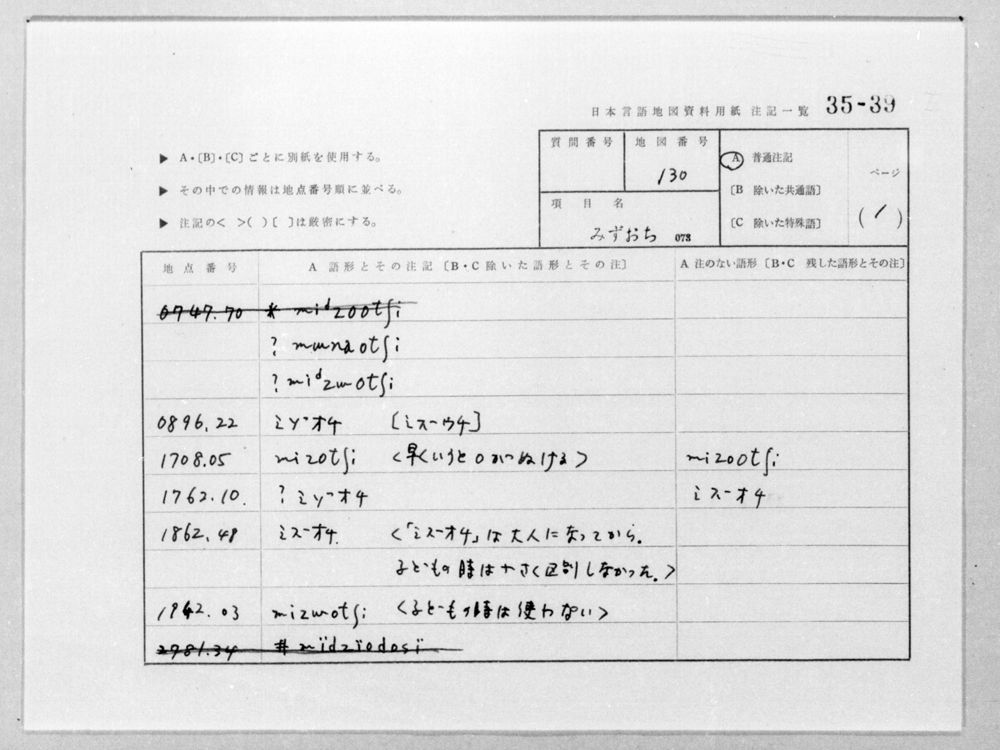 日本言語地図資料用紙 注記一覧 35-39
▶ A・〔B〕・〔C〕ごとに別紙を使用する。
▶ その中での情報は地点番号順に並べる。
▶ 注記の< >( )[ ]は厳密にする。
質問番号 地図番号 130
項目名 みずおち 073
A 普通注記
〔B 除いた共通語〕
〔C 除いた特殊語〕
ページ (1)
地点番号 A 語形とその注記〔B・C 除いた語形とその注〕 A 注のない語形〔B・C 残した語形とその注〕
0747.70 * miᵈzootʃi
? munaotʃi
? miᵈzɯotʃi
0896.22 ミゾオチ [ミズウチ]
1708.05 mizotʃi <早くいうとoがぬける> mizootʃi
1762.10 ? ミゾオチ ミズオチ
1862.48 ミズオチ <「ミズオチ」は大人になってから。
子どもの時は 区別しなかった。>
1942.03 mizɯotʃi <子どもの時は使わない>
2981.34 # mïdzïodosï